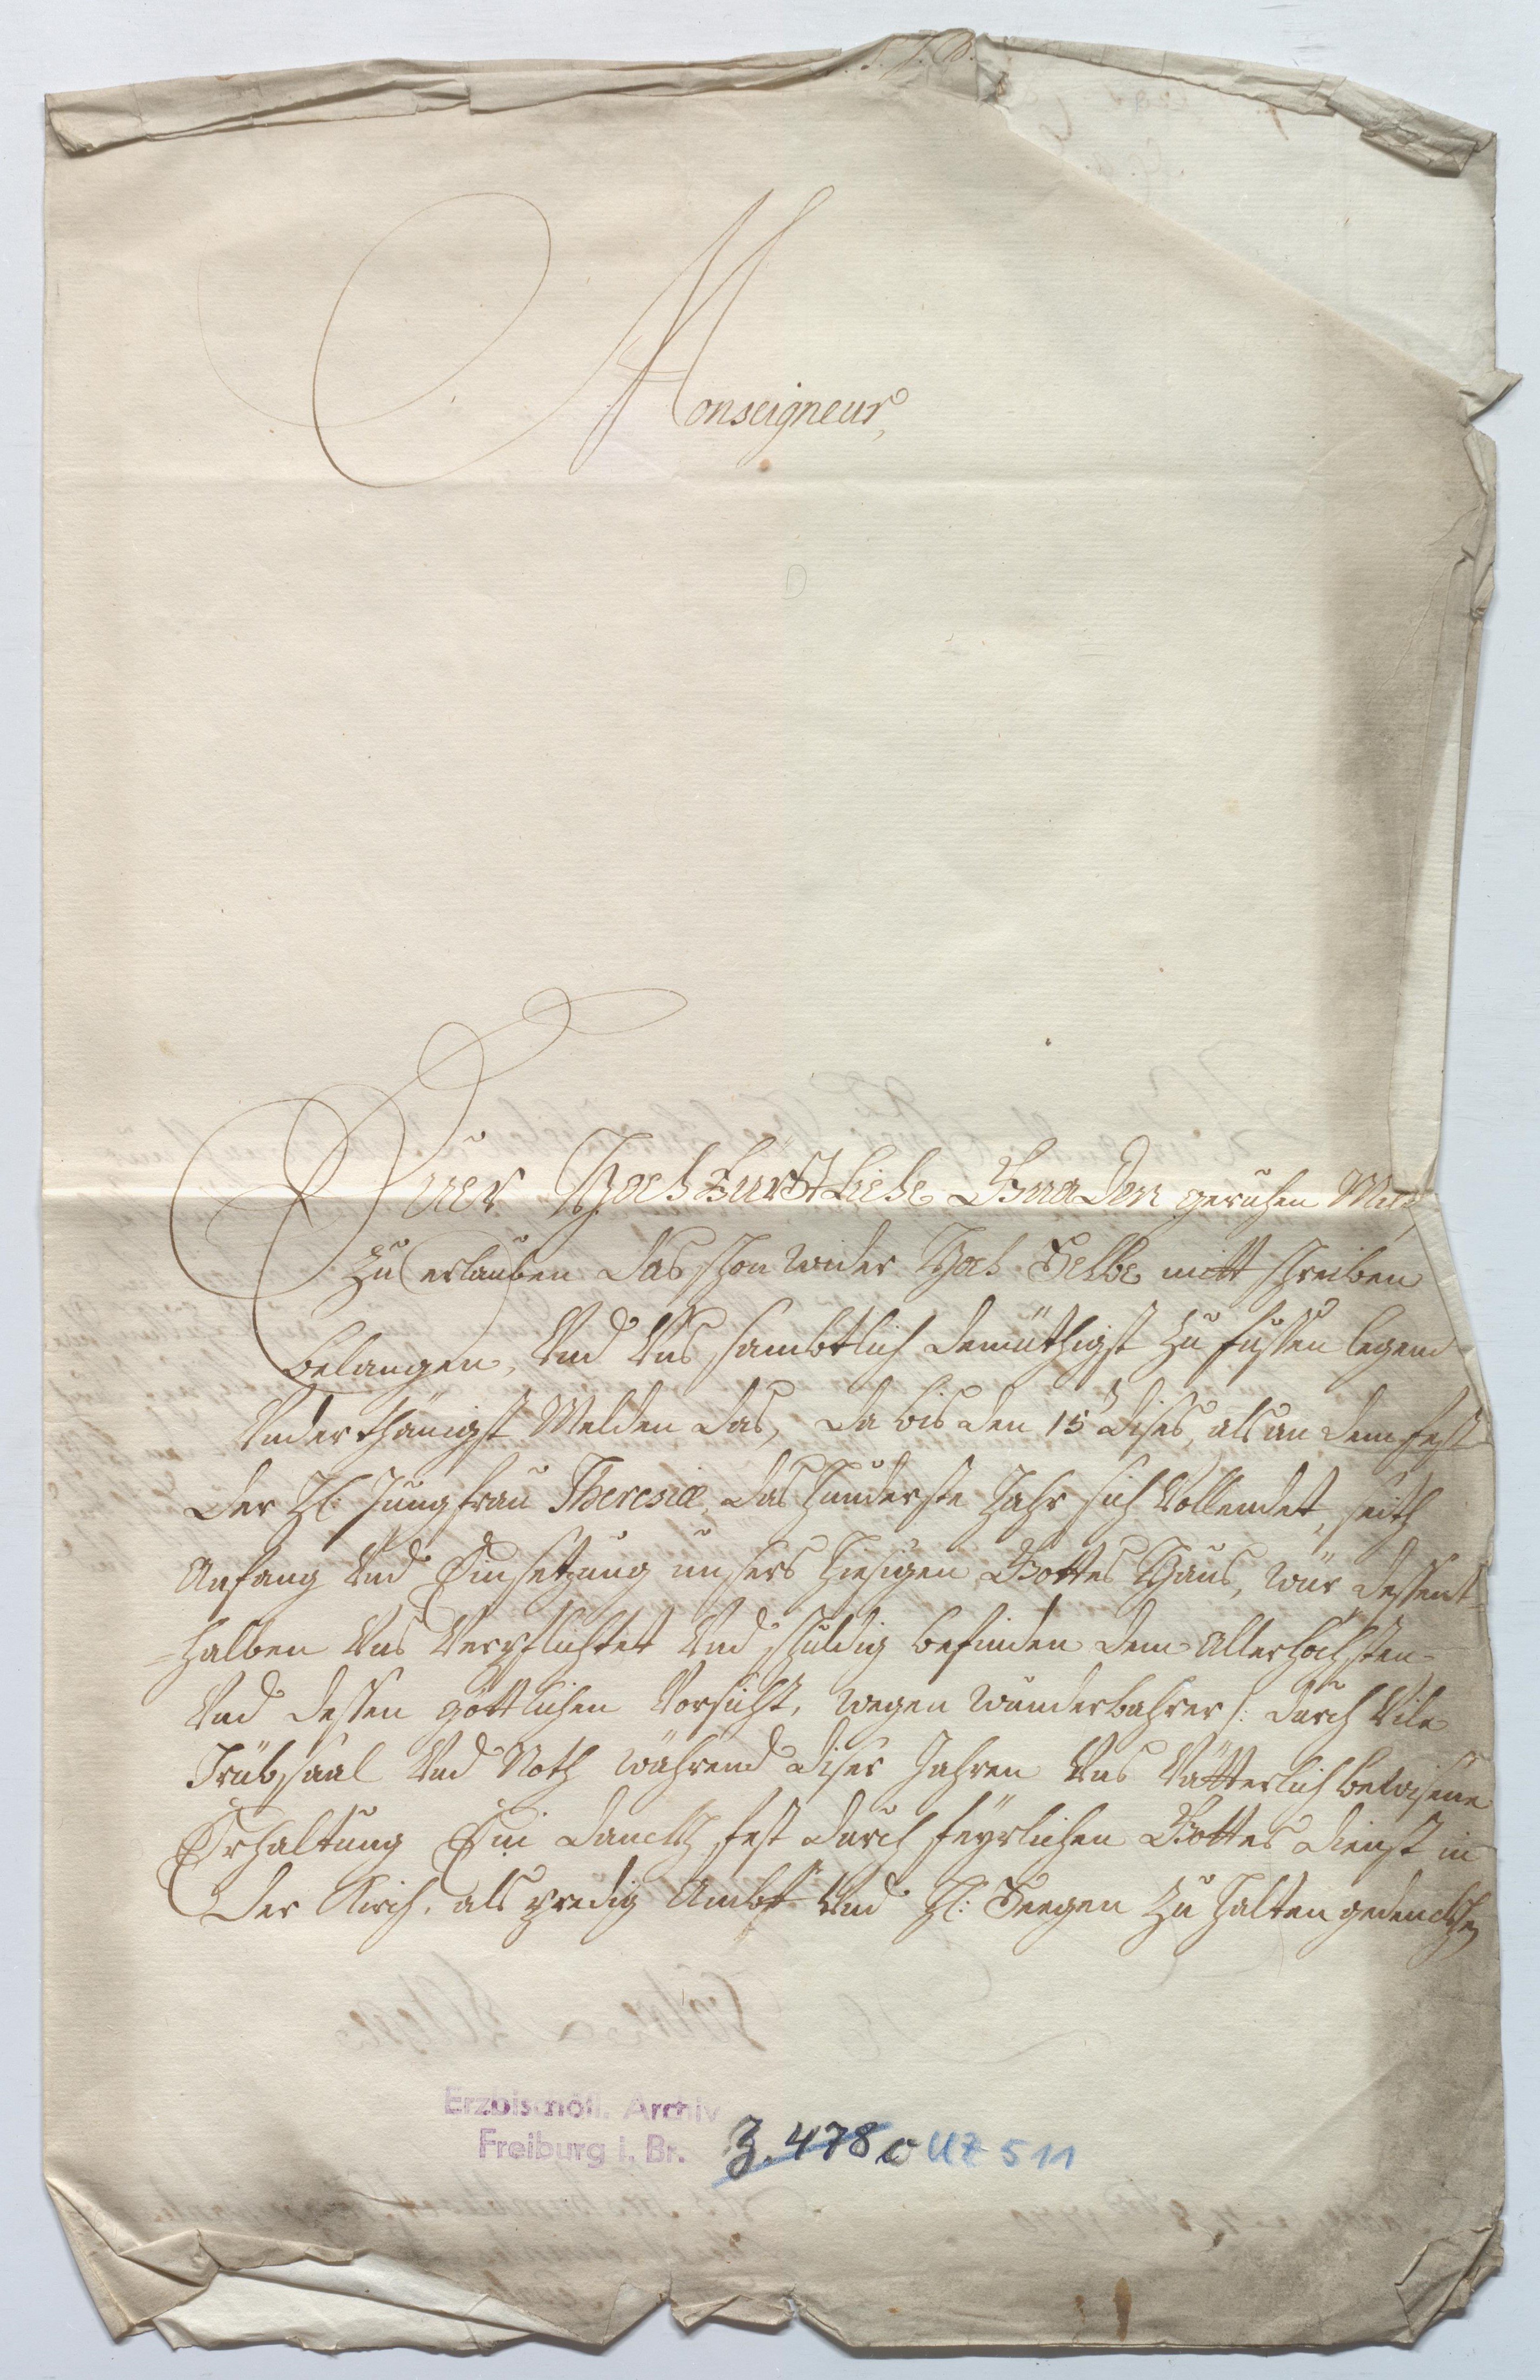 Monseigneur,
Euer Hochfürstliche Gnaden geruhen Mir
zu erlauben das schon wider Hoch Selbe mitt schreiben
belangen, Vnd Vns sambtlich demüthigst zu füssen legend
Vnderthänigst Melden das, da bis den 15 dises, als an dem fest
der Hl: Jungfrau Theresiæ, das hunderste Jahr sich Vollendet, seith
Anfang Vnd Einsetzung unsers hiesigen Gottes Haus, wür dessent
=halben Vns Verpflichtet Vnd schuldig befinden dem Allerhöchsten
Vnd dessen göttlichen Vorsicht, wegen wunderbahrer /: durch Vile
Trübsaal Vnd Noth während diser Jahren Vns Vätterlich bewisene
Erhaltung Ein danckh fest durch feyrlichen Gottes dienst in
der Kirch, als predig Ambt Vnd Hl: Seegen zu halten gedenckhen
Erzbischöfl. Archiv
Freiburg i. Br.
3.478 c UZ 511